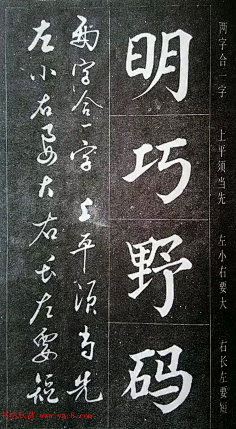 两字合一字 上平须当先 左小右要大 右长左要短
明巧野码
两字合一字上平须当先
左小右要大右长左要短